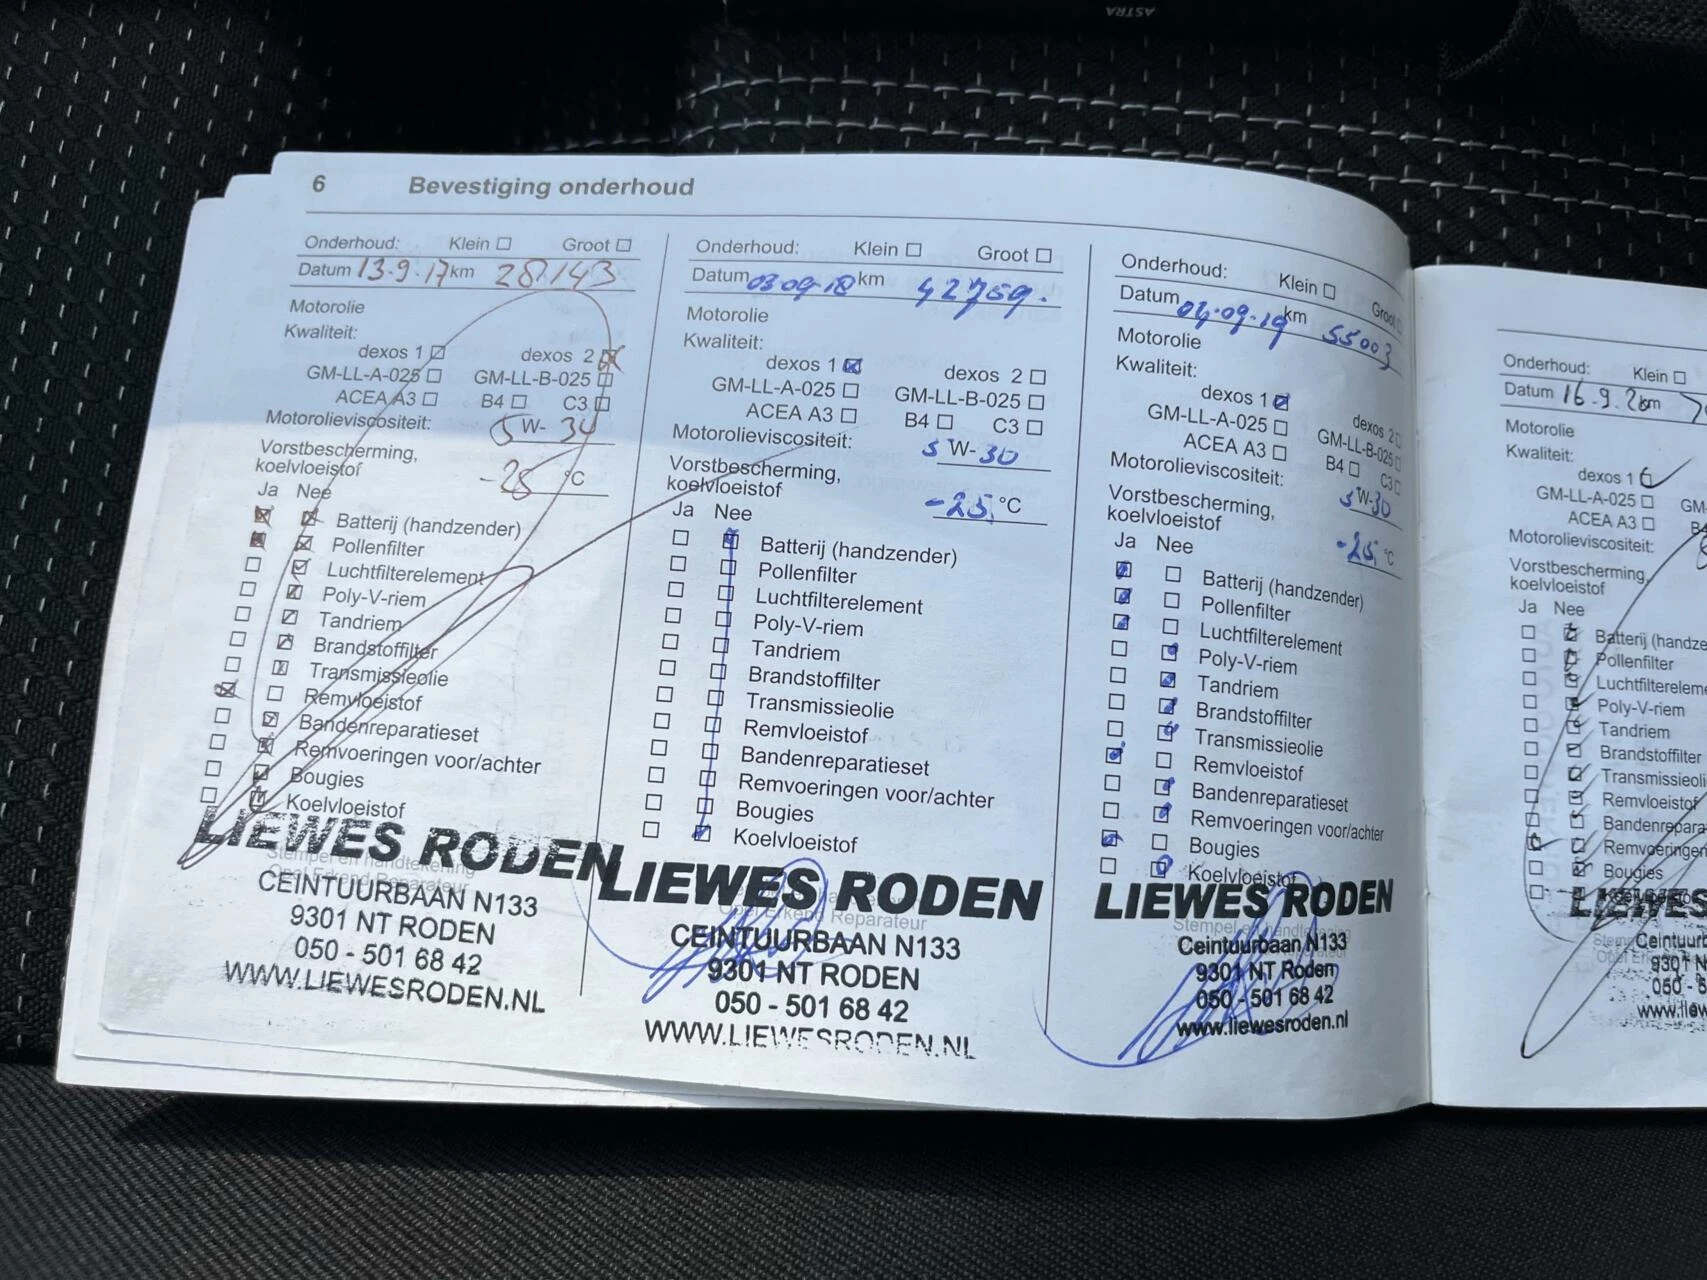 ASTRA
6 Bevestiging onderhoud
Onderhoud: Klein Groot
Datum 13.9.17 km 28143
Motorolie
Kwaliteit:
dexos 1 dexos 2
GM-LL-A-025 GM-LL-B-025
ACEA A3 B4 C3
Motorolieviscositeit: 5 W- 30
Vorstbescherming,
koelvloeistof -28 °C
Ja Nee
Batterij (handzender)
Pollenfilter
Luchtfilterelement
Poly-V-riem
Tandriem
Brandstoffilter
Transmissieolie
Remvloeistof
Bandenreparatieset
Remvoeringen voor/achter
Bougies
Koelvloeistof
LIEWES RODEN
Stempel en handtekening
Opel Erkend Reparateur
CEINTUURBAAN N133
9301 NT RODEN
050 - 501 68 42
WWW.LIEWESRODEN.NL
Onderhoud: Klein Groot
Datum 03-09-18 km 42759.
Motorolie
Kwaliteit:
dexos 1 dexos 2
GM-LL-A-025 GM-LL-B-025
ACEA A3 B4 C3
Motorolieviscositeit: 5 W- 30
Vorstbescherming,
koelvloeistof -25, °C
Ja Nee
Batterij (handzender)
Pollenfilter
Luchtfilterelement
Poly-V-riem
Tandriem
Brandstoffilter
Transmissieolie
Remvloeistof
Bandenreparatieset
Remvoeringen voor/achter
Bougies
Koelvloeistof
LIEWES RODEN
Opel Erkend Reparateur
CEINTUURBAAN N133
9301 NT RODEN
050 - 501 68 42
WWW.LIEWESRODEN.NL
Onderhoud: Klein Groot
Datum 04-09-19 km 55003
Motorolie
Kwaliteit:
dexos 1 dexos 2
GM-LL-A-025 GM-LL-B-025
ACEA A3 B4 C3
Motorolieviscositeit: 5 W-30
Vorstbescherming,
koelvloeistof -25, °C
Ja Nee
Batterij (handzender)
Pollenfilter
Luchtfilterelement
Poly-V-riem
Tandriem
Brandstoffilter
Transmissieolie
Remvloeistof
Bandenreparatieset
Remvoeringen voor/achter
Bougies
Koelvloeistof
LIEWES RODEN
Stempel en handtekening
Ceintuurbaan N133
9301 NT Roden
050 - 501 68 42
www.liewesroden.nl
Onderhoud: Klein
Datum 16.9.20 km
Motorolie
Kwaliteit:
dexos 1
GM-LL-A-025 GM-
ACEA A3 B4
Motorolieviscositeit:
Vorstbescherming,
koelvloeistof
Ja Nee
Batterij (handze
Pollenfilter
Luchtfiltereleme
Poly-V-riem
Tandriem
Brandstoffilter
Transmissieoli
Remvloeistof
Bandenrepara
Remvoeringen
Bougies
LIEWES
Ceintuurb
9301 N
050 - 5
www.liew